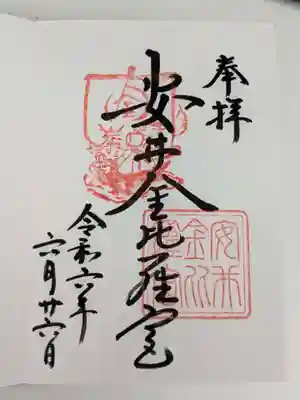 奉拝
安井金比羅宮
令和六年
六月廿六日